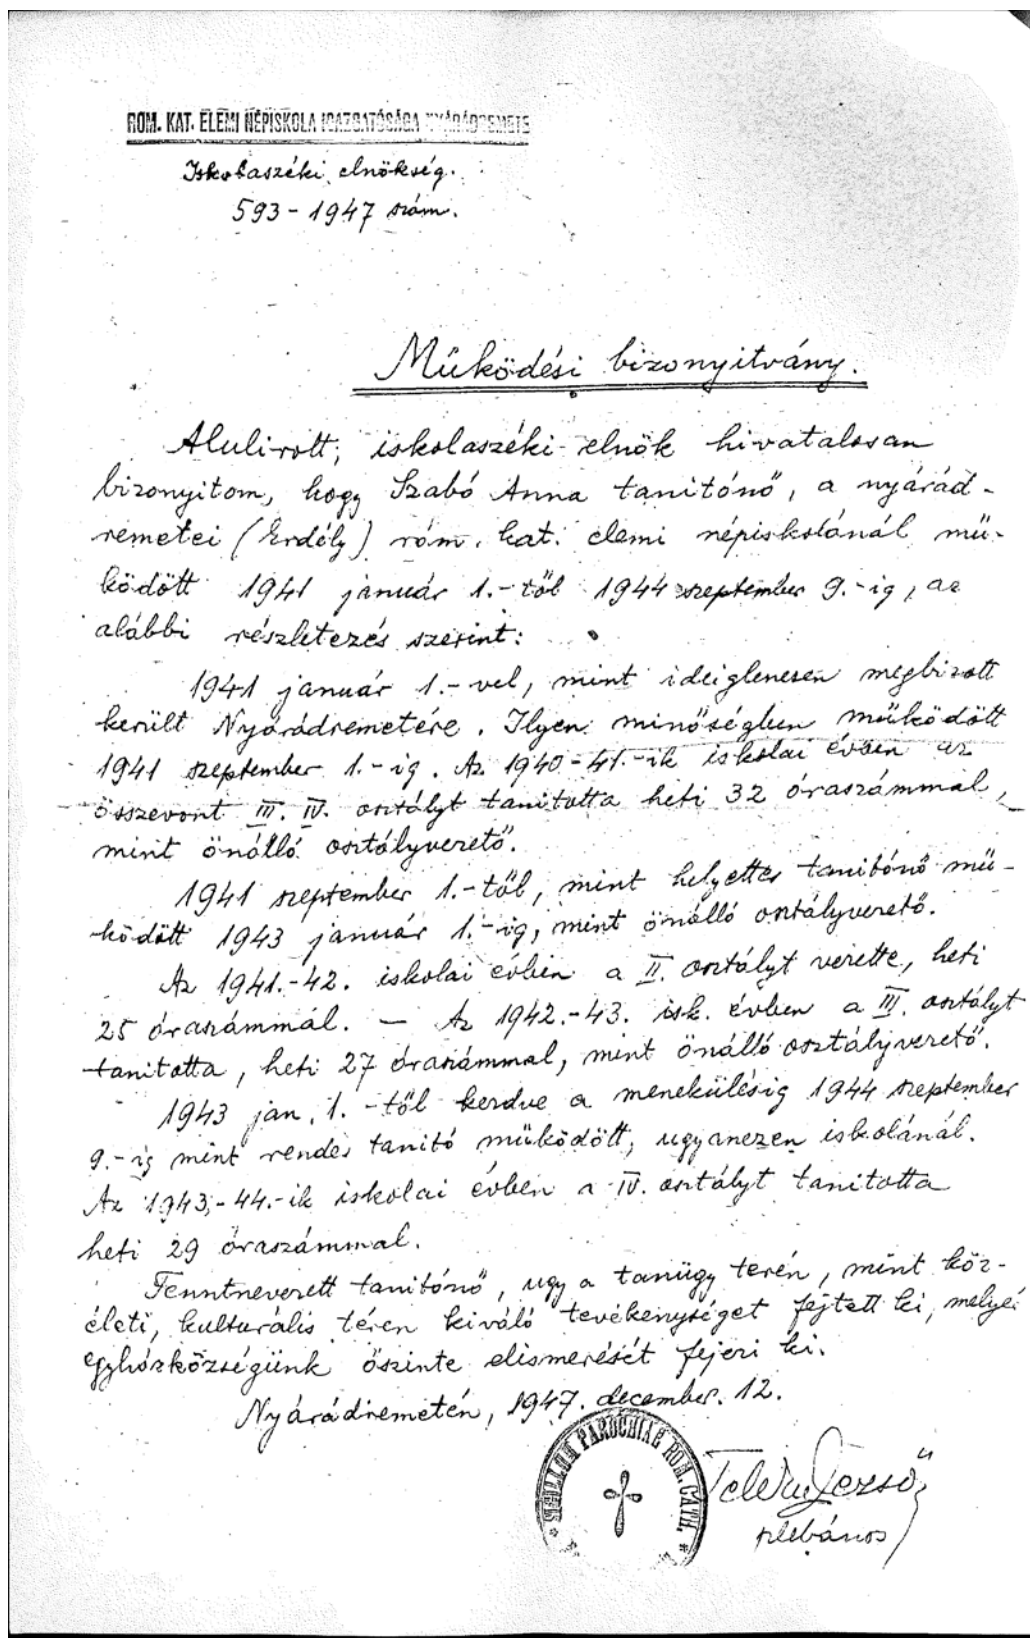 ROM. KAT. ELEMI NÉPISKOLA IGAZGATÓSÁGA NYÁRÁDREMETE
Iskolaszéki elnökség.
593-1947 szám.
Működési bizonyitvány.
Alulirott, iskolaszéki elnök hivatalosan
bizonyitom, hogy Szabó Anna tanitónő, a nyárád-
remetei (Erdély) róm. kat. elemi népiskolánál mű-
ködött 1941 január 1.-től 1944 szeptember 9.-ig, az
alábbi részletezés szerint:
1941 január 1.-vel, mint ideiglenesen megbizott
került Nyárádremetére. Ilyen minőségben működött
1941 szeptember 1.-ig. Az 1940-41.-ik iskolai évben az
összevont III. IV. osztályt tanitotta heti 32 óraszámmal,
mint önálló osztályvezető.
1941 szeptember 1.-től, mint helyettes tanitónő mű-
ködött 1943 január 1.-ig, mint önálló osztályvezető.
Az 1941.-42. iskolai évben a II. osztályt vezette, heti
25 óraszámmal. — Az 1942.-43. isk. évben a III. osztályt
tanitotta, heti 27 óraszámmal, mint önálló osztályvezető.
1943 jan. 1.-től kezdve a menekülésig 1944 szeptember
9.-ig mint rendes tanitó működött, ugyanezen iskolánál.
Az 1943.-44.-ik iskolai évben a IV. osztályt tanitotta
heti 29 óraszámmal.
Fenntnevezett tanitónő, ugy a tanügy terén, mint köz-
életi, kulturális téren kiváló tevékenységet fejtett ki, melyért
egyházközségünk őszinte elismerését fejezi ki.
Nyárádremetén, 1947. december. 12.
SIGILLUM PAROCHIAE ROM. CATH.
Dezső
plébános